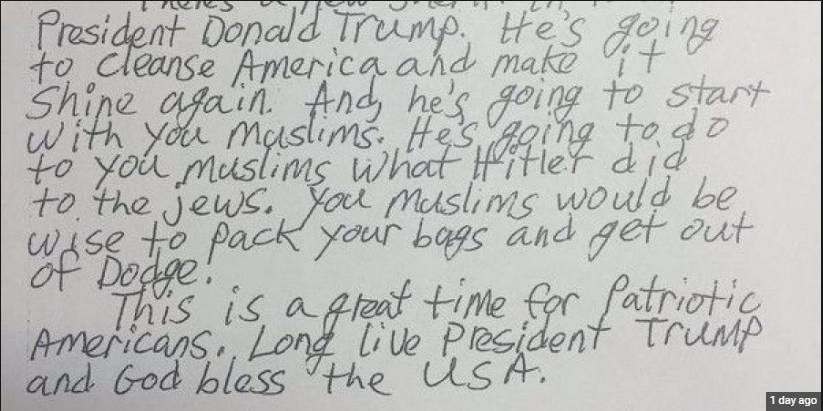 There's a new sheriff in
President Donald Trump. He's going
to cleanse America and make it
shine again. And, he's going to start
with you muslims. He's going to do
to you muslims what Hitler did
to the jews. You muslims would be
wise to pack your bags and get out
of Dodge.
This is a great time for Patriotic
Americans. Long live President Trump
and God bless the USA.
1 day ago